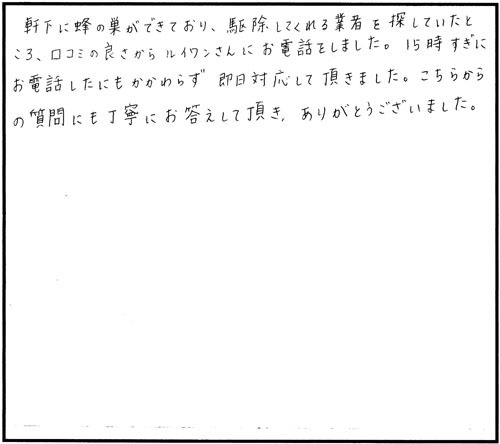 軒下に蜂の巣ができており、駆除してくれる業者を探していたと
ころ、口コミの良さからルイワンさんにお電話をしました。15時すぎに
お電話したにもかかわらず即日対応して頂きました。こちらから
の質問にも丁寧にお答えして頂き、ありがとうございました。